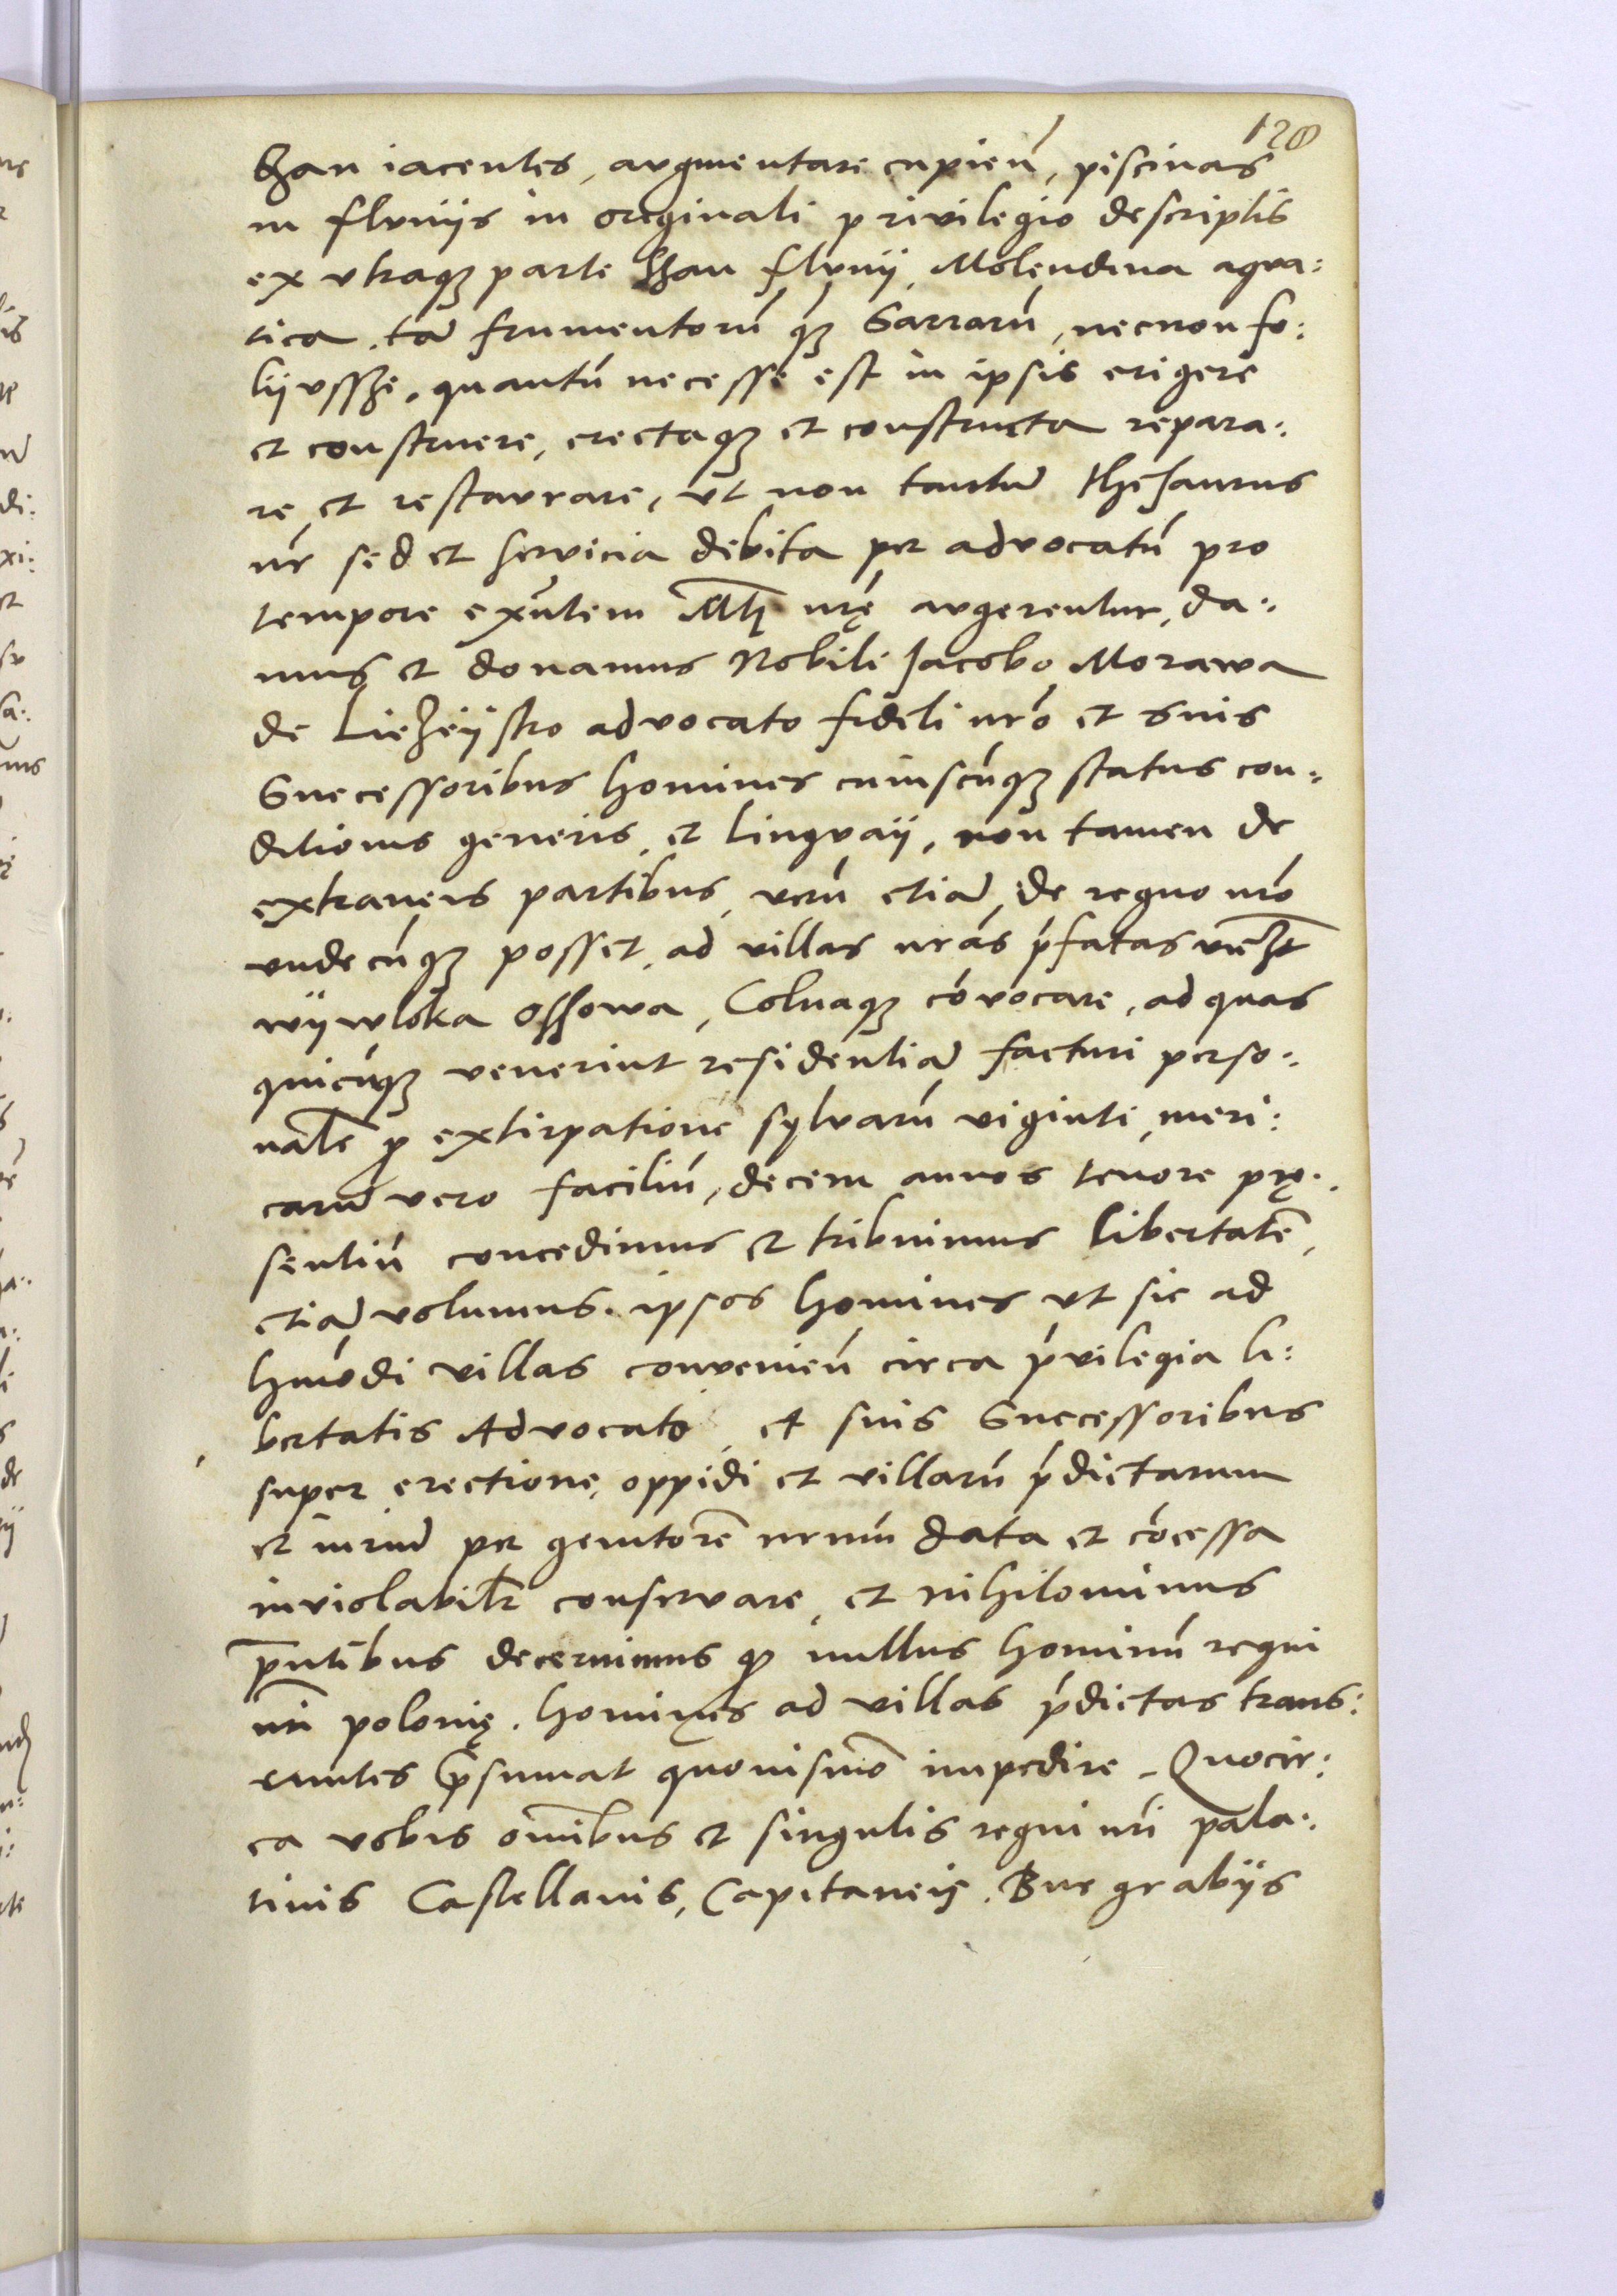 120
ssan iacentes, augmentare cupień, piscinas
in fluuijs in originali priuilegio descriptis
ex vtraqȝ parte ssan fluuij, Molendina aqua:
tica, tā frumentorū qȝ Sarrarū, necnon fo:
lijussze, quantū necesse est in ipsis erigere
et construere, erectaqȝ et constructa repara:
re, et restaurare, ut non tantū thesaurus
nr̄ sed et seruicia debita per aduocatū pro
tempore exn̄tem Mti nr̄ę augerentur, da:
mus et donamus Nobili Jacobo Morawa
de Liezeijsko aduocato fideli nr̄o et suis
Successoribus homines cuiuscūqȝ status con:
ditionis generis, et linguaij, non tamen de
extraneis partibus, verū etiā, de regno nr̄o
undecūqȝ posset, ad villas nr̄as p̄fatas
wijwloka Ossowa, Colnaqȝ cōuocare, ad quas
quicūqȝ venerint residentiā facturi perso:
nalē p extirpatione syluarū viginti, meri:
carū vero faciliū, decem annos tenore prę:
sentiū concedimus et tribuimus libertatē,
etiā volumus. ipsos homines ut sic ad
hmōdi villas convenień circa p̄uilegia li:
bertatis Aduocato, et suis Successoribus
super erectione, oppidi et villarū p̄dictarum
et iuriū per genitorē nrm̄ data et cōcessa
inuiolabilr̄ conseruare, et nihilominus
pn̄tibus decernimus qp nullus hominū regni
nr̄i polonię. homines ad villas p̄dictas trans:
euntes p̄sumat quouismō impedire. Quocir:
ca vobis om̄ibus et singulis regni nr̄i pala:
tinis Castellanis, Capitaneis. Burgrabijs